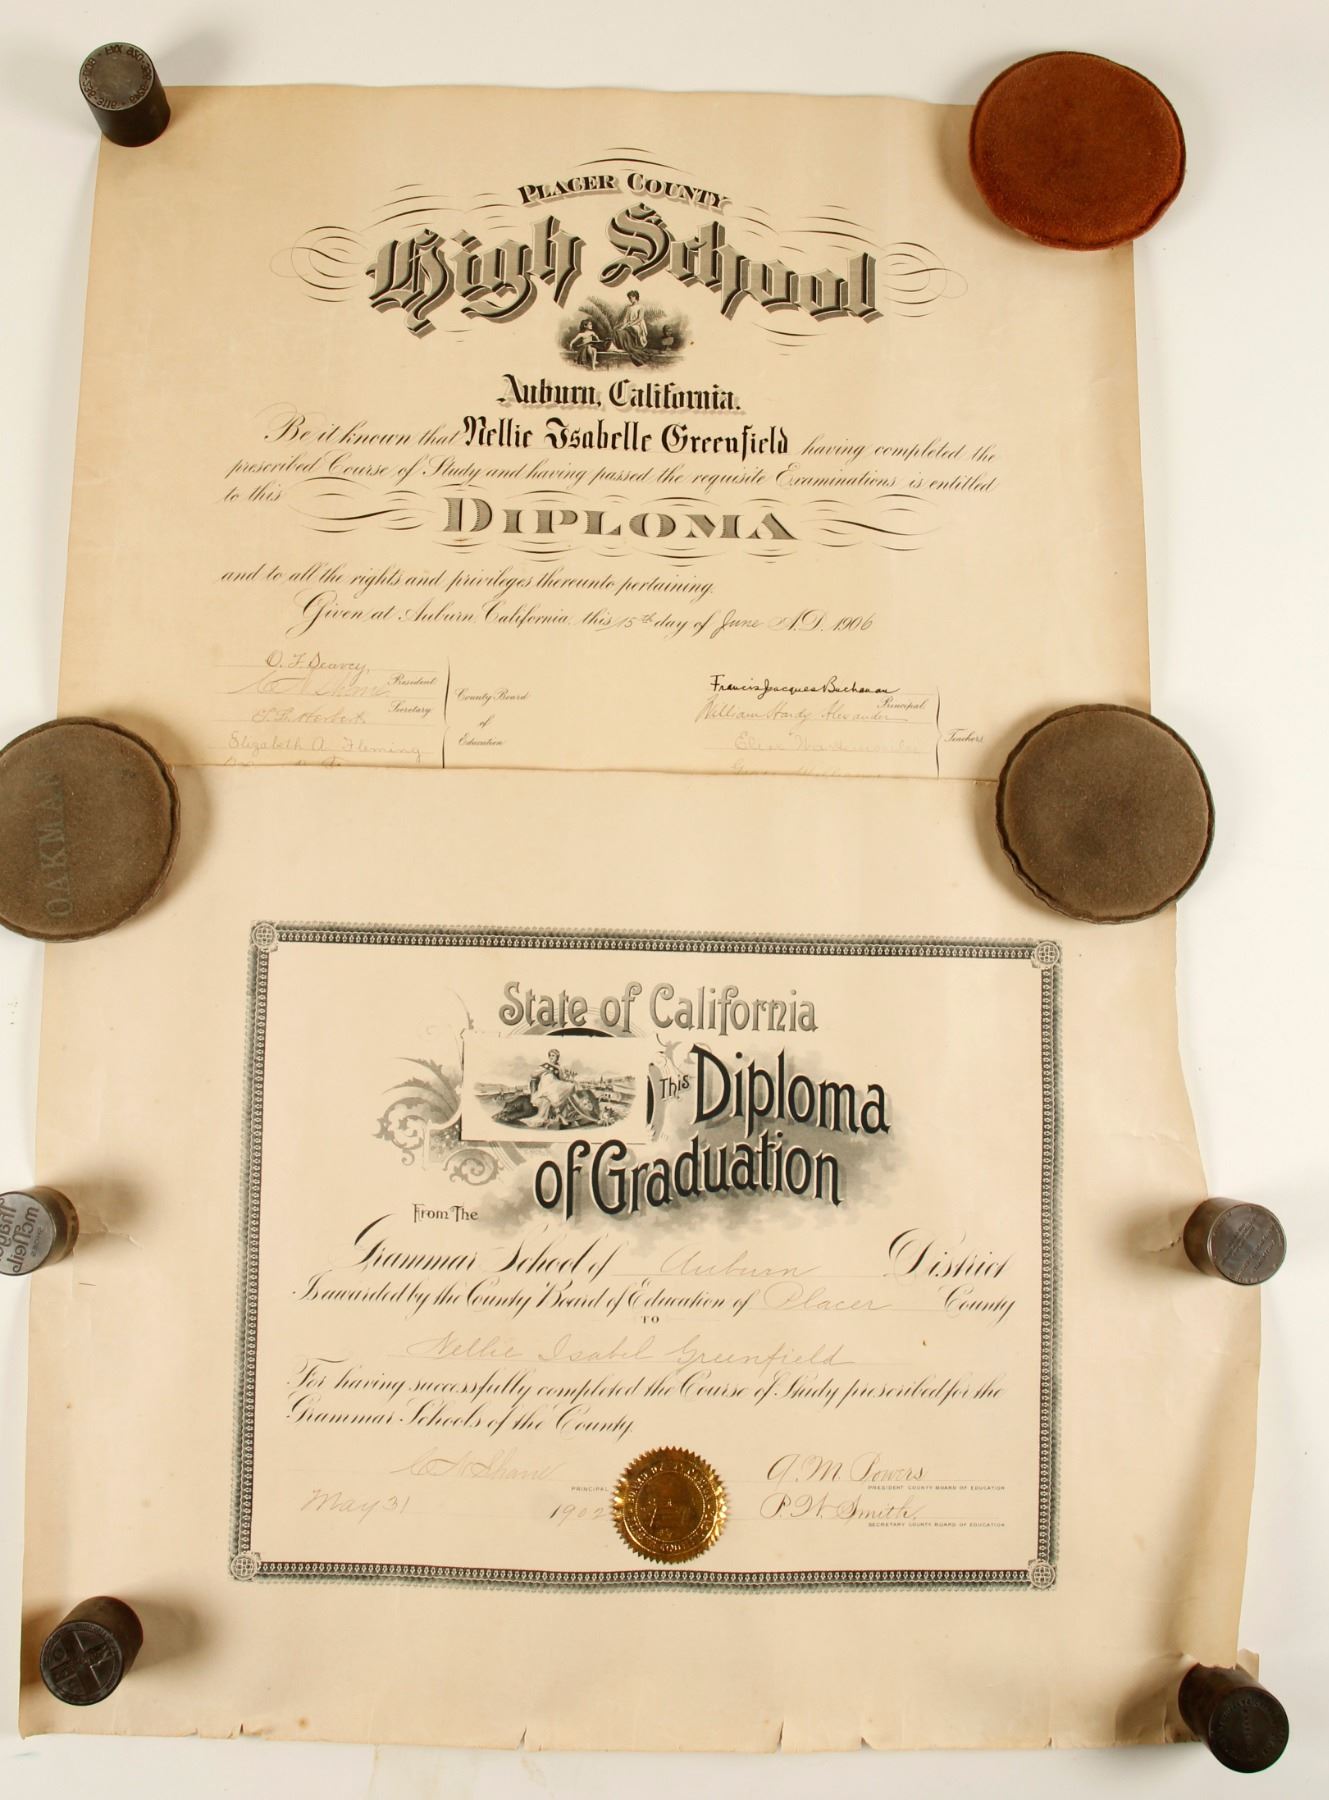 PLACER COUNTY
High School
Auburn, California.
Be it known that Nellie Isabelle Greenfield having completed the
prescribed Course of Study and having passed the requisite Examinations is entitled
to this
DIPLOMA
and to all the rights and privileges thereunto pertaining.
Given at Auburn, California, this 15th day of June A.D. 1906
O. F. Seavey,
President
C. N. Shane
Secretary
County Board
of
Education
Elizabeth A. Fleming
Francis Jacques Buchanan
Principal
William Hardy Alexander
Teachers
OAKMAN
State of California
This Diploma
of Graduation
From The
Grammar School of Auburn District
Is awarded by the County Board of Education of Placer County
TO
Nellie Isabel Greenfield
For having successfully completed the Course of Study prescribed for the
Grammar Schools of the County.
C. N. Shane
PRINCIPAL
A. M. Powers
PRESIDENT COUNTY BOARD OF EDUCATION
May 31 1902
P. W. Smith
SECRETARY COUNTY BOARD OF EDUCATION